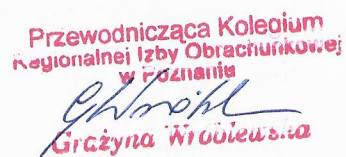 Przewodnicząca Kolegium
Regionalnej Izby Obrachunkowej
w Poznaniu
Grażyna Wróblewska